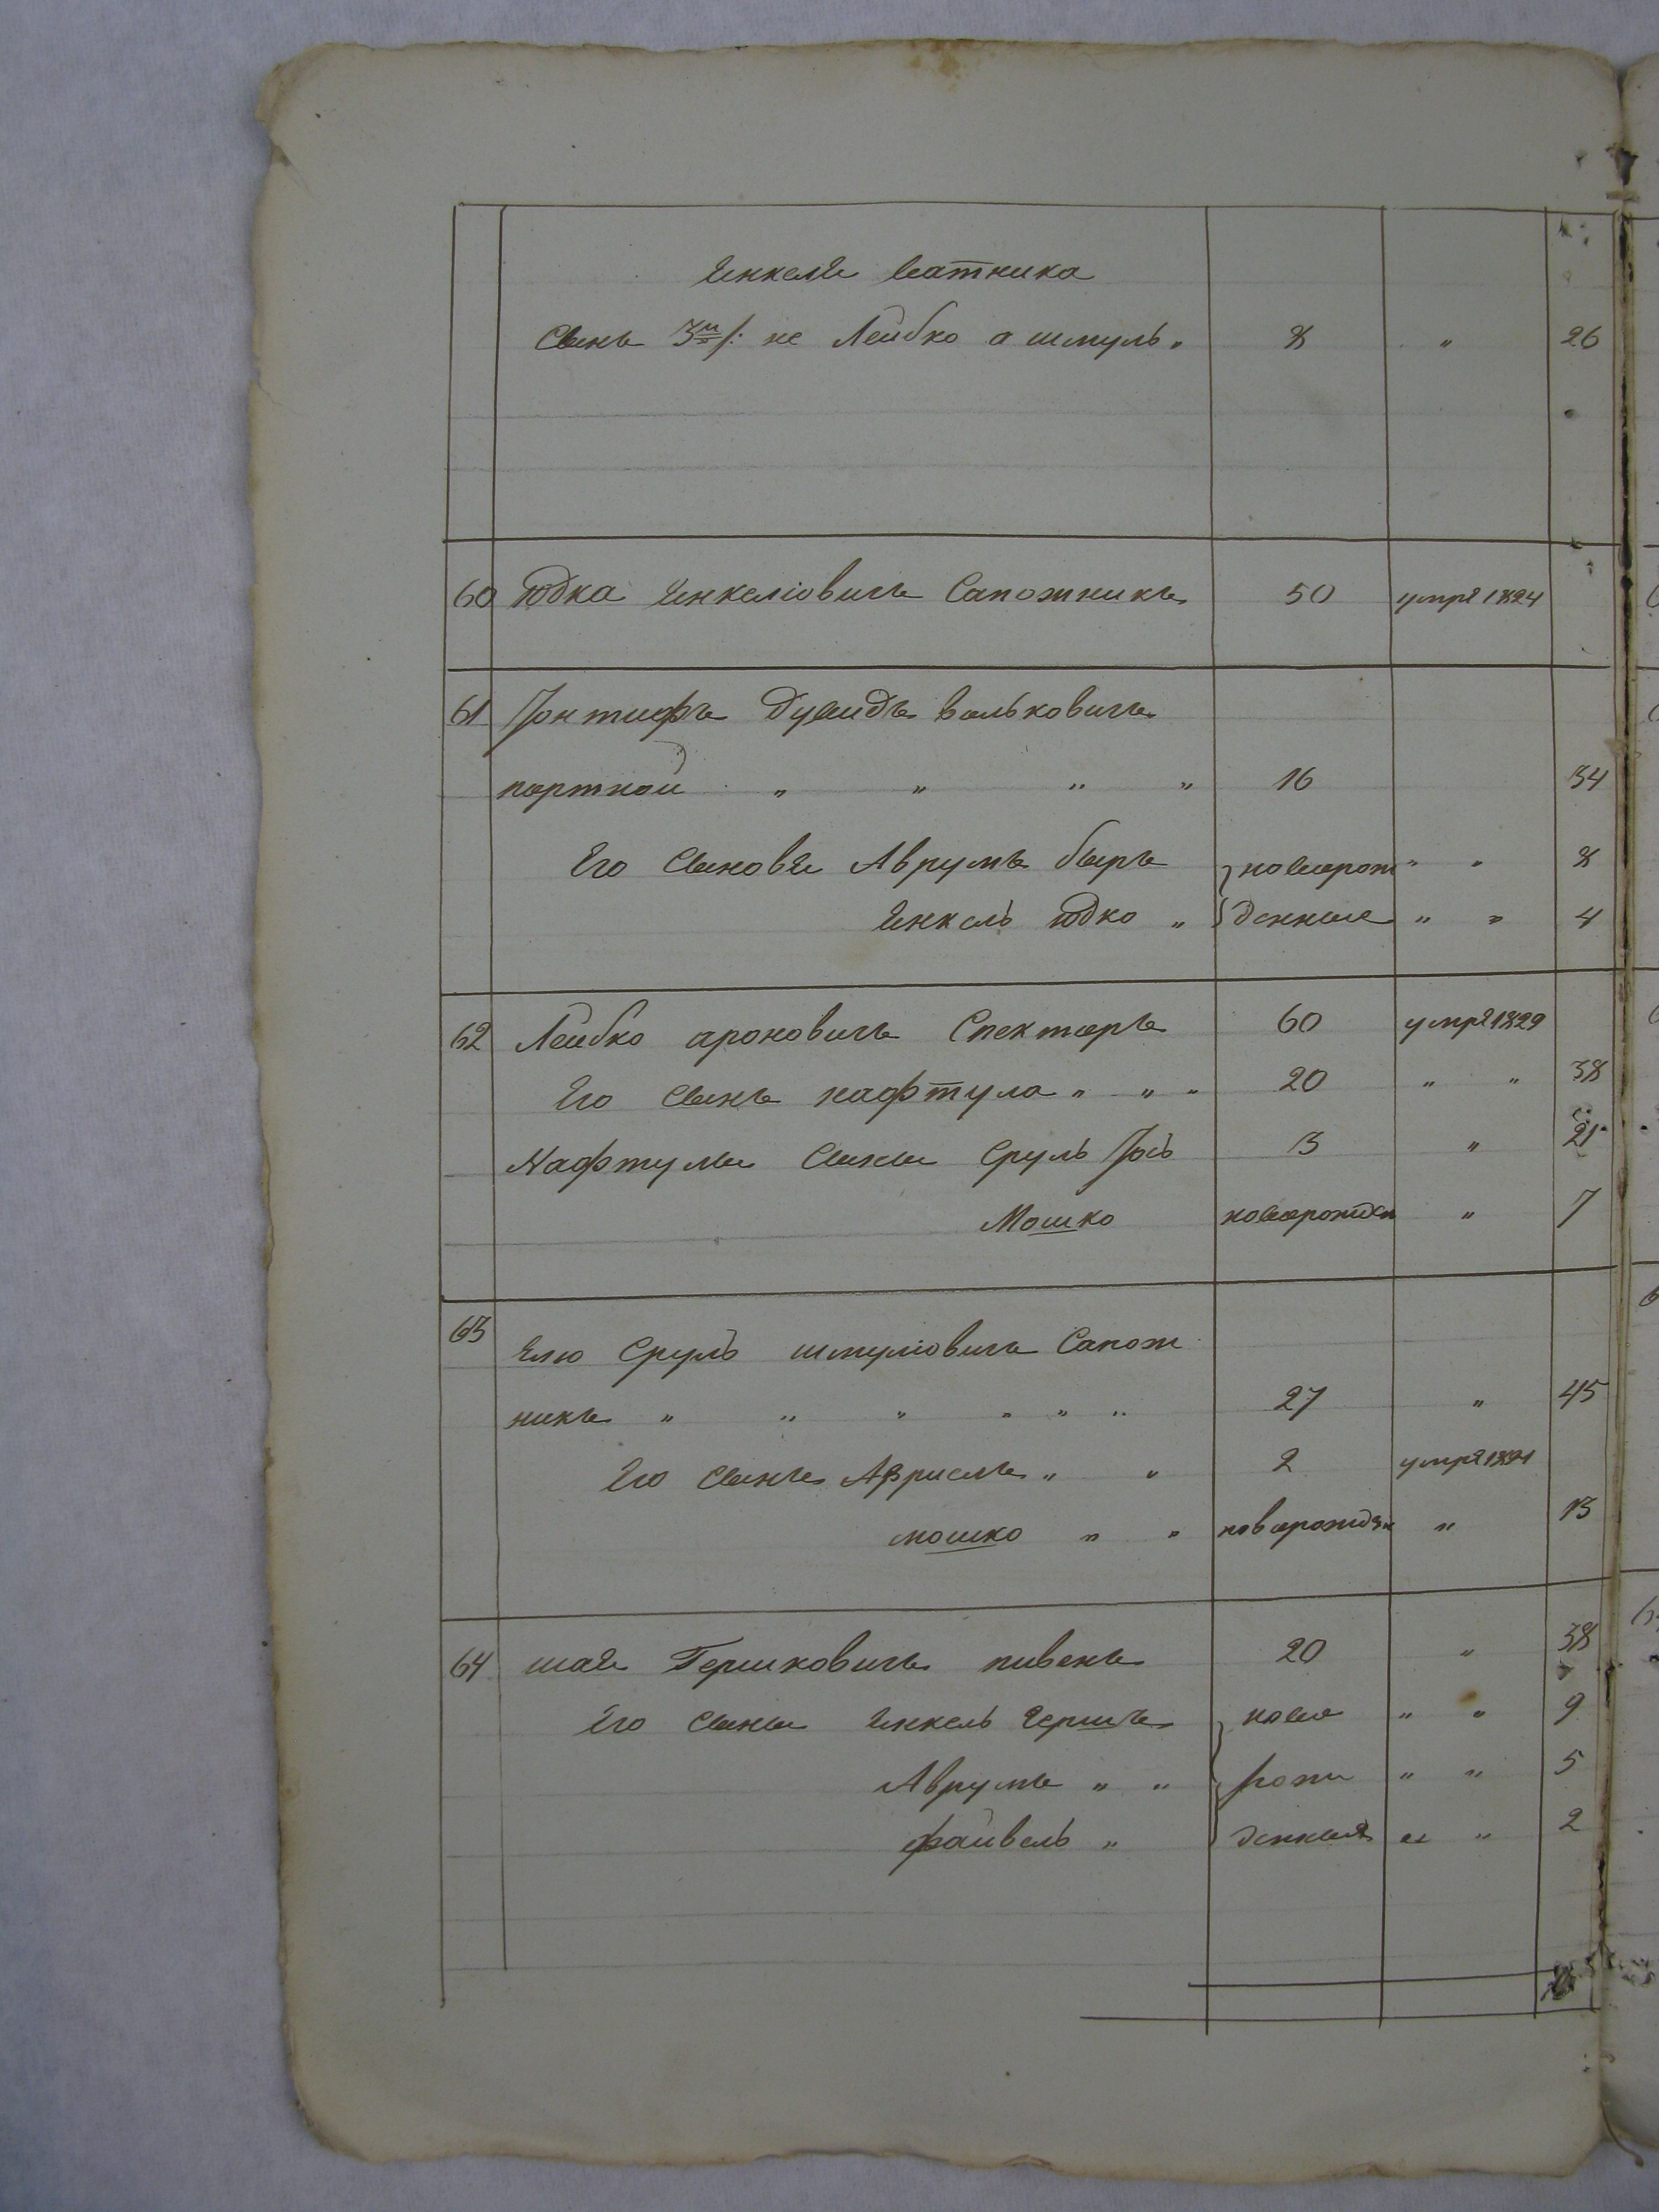 Янкеля ватника
Сынъ 3й /: не Лейбко а шмуль „ 8 „ 26
60 Юдка Янкеліовичь Сапожникъ 50 умре 1824
61 Іонтифъ Дувидъ вольковичъ
портной „ „ „ „ 16 34
Его Сыновя Аврумъ беръ новорож „ „ 8
Янкель Юдко „ денные „ „ 4
62 Лейбко ароновичъ Спекторъ 60 умре 1829
Его Сынъ нафтула „ „ „ 20 „ „ 38
Нафтулы Сыны Сруль Іось 3 „ 21
Мошко новорожден „ 7
63 Елю Сруль шмуліовичъ Сапож
никъ „ „ „ „ „ „ 27 „ 45
Его Сынъ Азриель „ „ 2 умре 1821
мошко „ „ новорожден „ 13
64 шая Гершковичъ пивень 20 „ 38
Его Сыны Янкель Гершъ ново „ „ 9
Аврумъ „ „ рож „ „ 5
файвель „ денныя „ „ 2